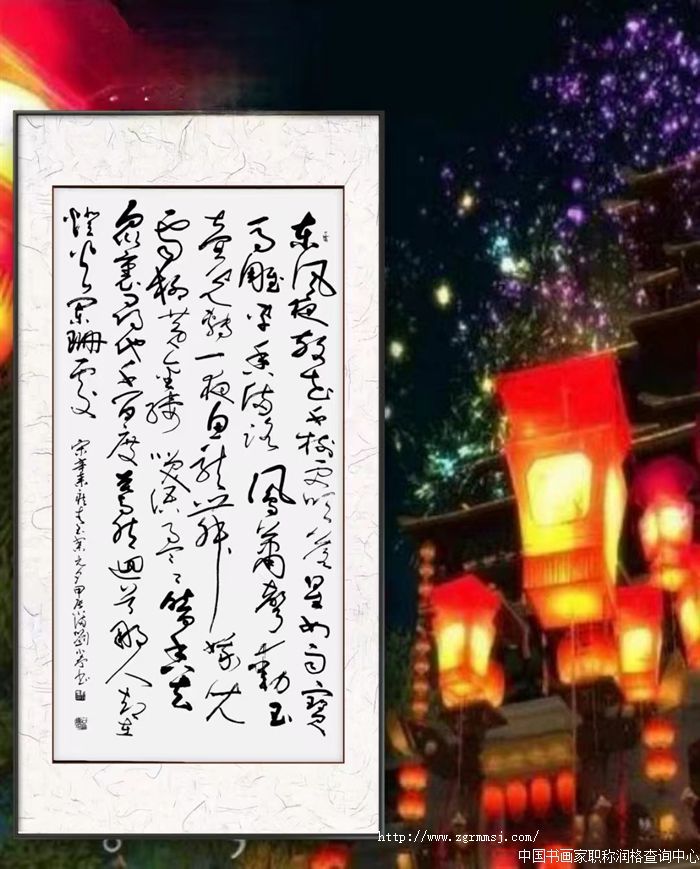 东风夜放花千树更吹落星如雨宝
马雕车香满路凤箫声动玉
壶光转一夜鱼龙舞蛾儿
雪柳黄金缕笑语盈盈暗香去
众里寻他千百度蓦然回首那人却在
灯火阑珊处
宋辛弃疾青玉案元夕甲辰
http://www.zgrmmsj.com/
中国书画家职称润格查询中心